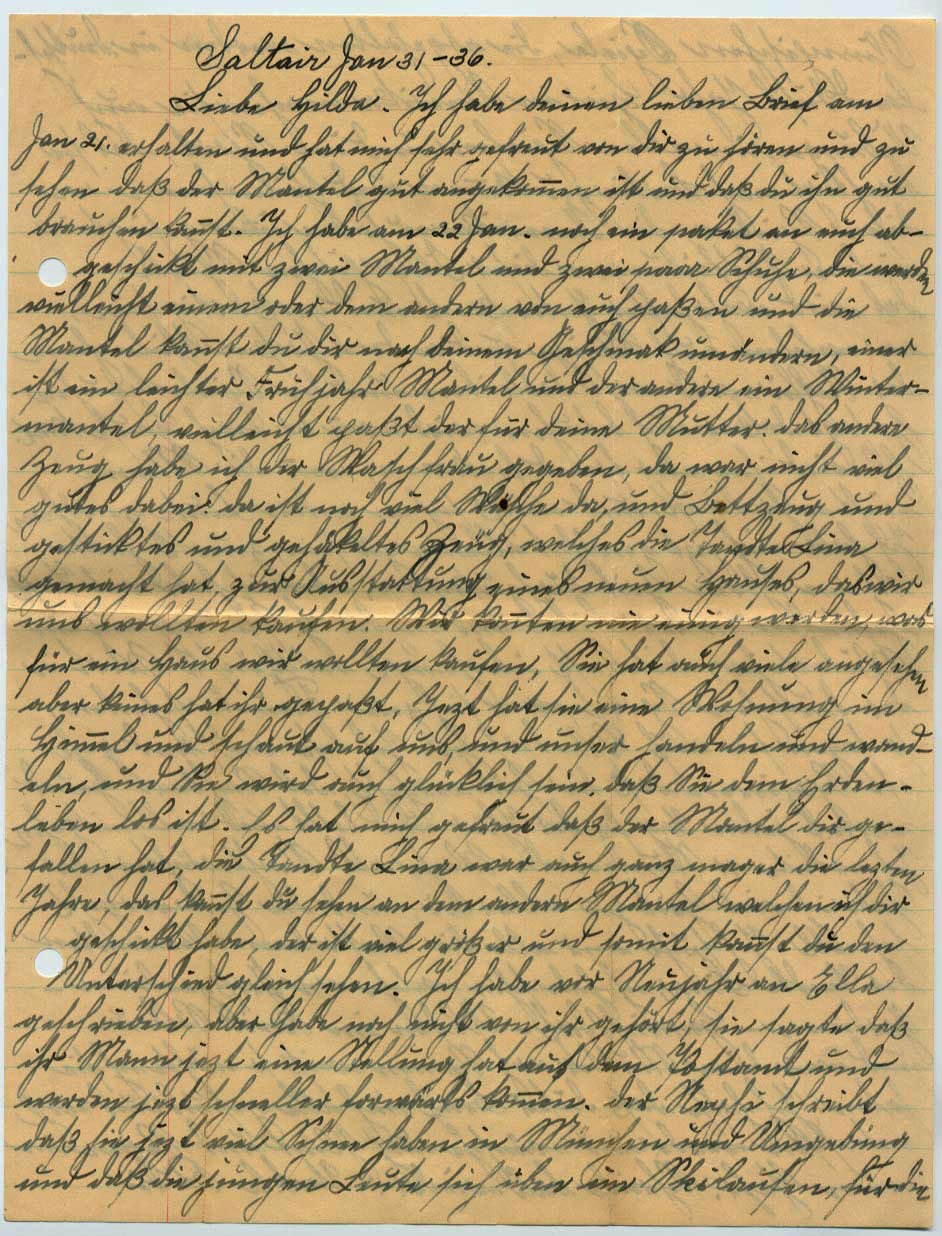 Saltair Jan 31-36.
Liebe Hilda. Ich habe deinen lieben Brief am
Jan 21. erhalten und hat mich sehr gefreut von dir zu hören und zu
sehen daß der Mantel gut angekom̄en ist und daß du ihn gut
brauchen kan̄st. Ich habe am 22 Jan. noch ein paket an euch ab-
geschickt mit zwei Mantel und zwei paar Schuhe, die werden
vielleicht einem oder dem andern von euch paßen und die
Mantel kan̄st du dir nach deinem Geschmak umändern, einer
ist ein leichter Frühjahr Mantel und der andere ein Winter-
mantel, vielleicht paßt der für deine Mutter. das andere
Zeug habe ich der Waschfrau gegeben, da war nicht viel
gutes dabei. da ist noch viel Wäsche da, und Bettzeug und
gesticktes und gehäkeltes Zeug, welches die Tandte Lina
gemacht hat, zur Ausstattung eines neuen Hauses, das wir
uns wollten kaufen. Wir kon̄ten nie einig werden, was
für ein Haus wir wollten kaufen, Sie hat auch viele angesehen
aber keines hat ihr gepaßt, Jezt hat sie eine Wohnung im
Him̄el und schaut auf uns, und unser handeln und wand-
eln, und Sie wird auch glücklich sein, daß Sie dem Erden-
leben los ist. Es hat mich gefreut daß der Mantel dir ge-
fallen hat, die Tandte Lina war auch ganz mager die lezten
Jahre, das kan̄st du sehen an dem andern Mantel welchen ich dir
geschickt habe, der ist viel größer und somit kan̄st du den
Unterschied gleich sehen. Ich habe vor Neujahr an Ella
geschrieben, aber habe noch nicht von ihr gehört, sie sagte daß
ihr Mann jezt eine Stellung hat auf dem Postamt und
werden jezt schneller forwärts kom̄en. der Nephi schreibt
daß sie jezt viel Schnee haben in München und Umgebung
und daß die jungen Leute sich üben im Skilaufen, für die